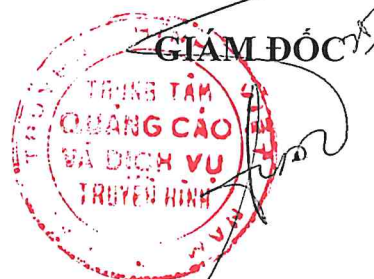 GIÁM ĐỐC
TRUNG TÂM
QUẢNG CÁO
VÀ DỊCH VỤ
TRUYỀN HÌNH
VIỆT NAM